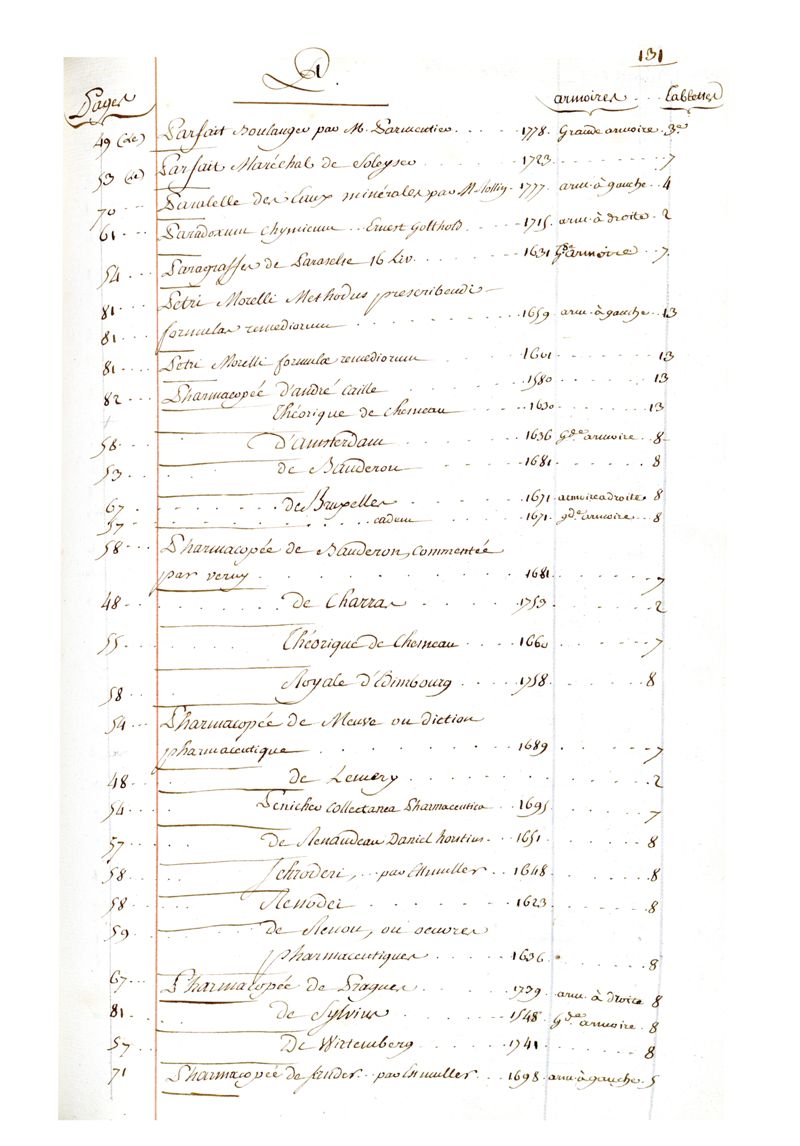 131
P.
Pages armoires ... tablettes
49 (de) Parfait Boulanger par M. Parmentier ... 1778. Grande armoire. 3e
53 Parfait Maréchal de Soleysel ... 1723 ... 7
70 ... Paralelle des Eaux minérales par M. ... 1777. arm. à gauche. 4
61 ... Paradoxum Chymicum ... Ernest Gotthold ... 1715. arm. à droite. 2
54 ... Paragraffes de Paraselse 16 Liv. ... 1631 Gde armoire .. 7.
81 ... Petri Morelli Methodus prescribendi
81 ... formulas remediorum ... 1659. arm. à gauche. 13
81 ... Petri Morelli formulæ remediorum ... 13
82 ... Pharmacopée d'andré Caille ... 1580 ... 13
Théorique de Cheneau ... 1630 ... 13
58 ... D'Amsterdam ... 1636 gde armoire . 8
53 ... de Bauderon ... 1681 ... 8
67 ... de Bruxelles ... 1671 armoire a droite. 8
57 ... eadem ... 1671. gde armoire ... 8
58 ... Pharmacopée de Bauderon, commentée
par verny ... 1681 ... 7
48 ... de Charras ... 1753 ... 2
55 ... Théorique de Cheneau ... 1660 ... 7
58 ... Royale d'Edimbourg ... 1758 ... 8
54 ... Pharmacopée de Meuve ou diction
pharmaceutique ... 1689 ... 7
48 ... de Lemery ... 2
54 ... Penicher Collectanea Pharmaceutica ... 1695 ... 7
57 ... de Renaudeau Daniel horstius ... 1651 ... 8
58 ... Schroderi, ... par Ettmuller ... 1648 ... 8
58 ... Renodei ... 1623 ... 8
59 ... de Renou, ou oeuvres
pharmaceutiques ... 1636 ... 8
67 ... Pharmacopée de Pragues ... 1739 arm. à droite 8
81 ... de Sylvius ... 1548 Gde armoire . 8
57 ... De Wirtemberg ... 1741 ... 8
71 Pharmacopée de ... par Ettmuller ... 1698 arm. à gauche. 5